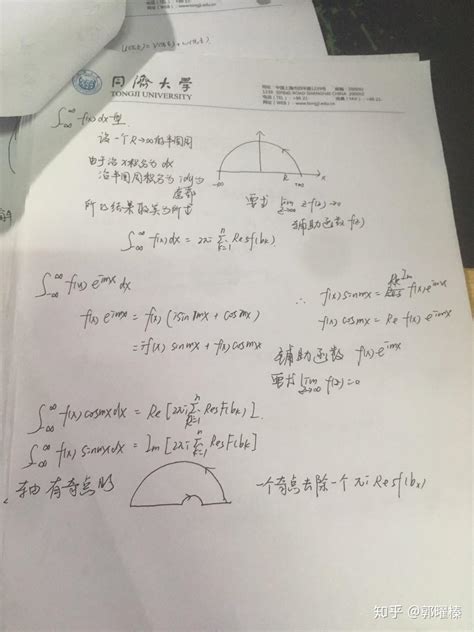 同濟大學
TONGJI UNIVERSITY
∫_{-∞}^{∞} f(x)dx 型
设一个R→∞的半圆周
由于沿x积分为dx
沿半圆周积分为
所以结果
-∞ R +∞ x
要求 lim_{z→∞} z·f(z)=0
辅助函数 f(z)
∫_{-∞}^{∞} f(x)dx = 2πi Σ_{k=1}^{n} Resf(b_k)
∫_{-∞}^{∞} f(x) e^{imx} dx
f(x) e^{imx} = f(x) (isin mx + cosmx)
= if(x) sinmx + f(x) cosmx
∴ f(x) sinmx = Im f(x) e^{imx}
f(x) cosmx = Re f(x) e^{imx}
辅助函数 f(x) e^{imx}
要求 lim_{z→∞} f(z)=0
∫_{-∞}^{∞} f(x) cosmx dx = Re [2πi Σ_{k=1}^{n} ResF(b_k)]
∫_{-∞}^{∞} f(x) sinmx dx = Im [2πi Σ_{k=1}^{n} ResF(b_k)]
轴有奇点时
一个奇点去除一个 πi Resf(b_k)
知乎 @郭曜榛